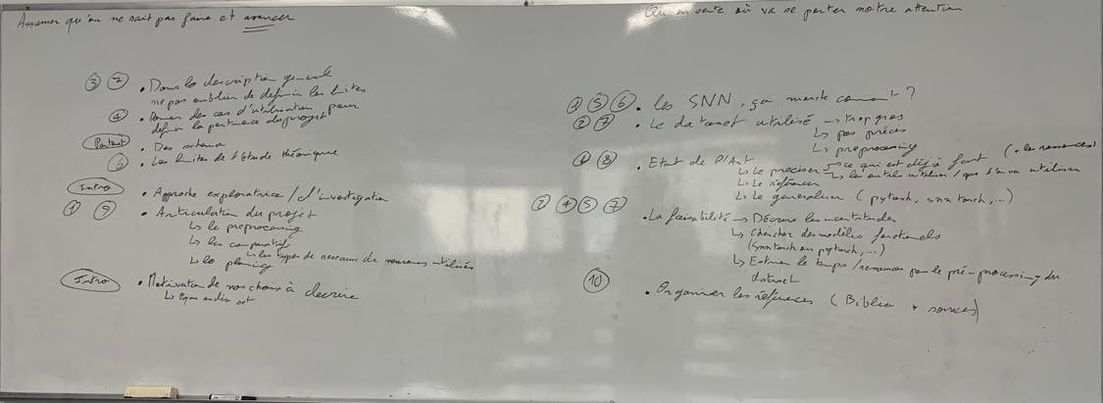 Assumer qu'on ne sait pas faire et avancer
③ ⑦ • Dans la description générale
ne pas oublier de définir les limites
④ • Donner des cas d'utilisation pour
définir la pertinence du projet
Partout • Des schémas
⑥ • Les limites de l'étude théorique
Intro • Approche exploratrice / d'investigation
① ⑨ • Articulation du projet
↳ le preprocessing
↳ les comparatifs
↳ les types de réseaux de neurones utilisés
↳ le planning
Intro • Motivation de nos choix à décrire
↳
où va se porter notre attention
⑤ ⑥ • Les SNN, ça marche comment ?
② ⑦ • Le dataset utilisé → trop gros
↳ pas précis
↳ preprocessing
⑧ • Etat de l'Art
↳ Le préciser → ce qui est déjà fait (+ les ressources)
↳ les outils utilisés / que l'on va utiliser
↳ Le référencer
↳ Le généraliser (pytorch, snntorch, ...)
④ ⑤ ⑦ • La faisabilité → Décrire les incertitudes
↳ Chercher des modèles fonctionnels
(snntorch ou pytorch, ...)
↳ Estimer le temps / ressources pour le pré-processing du
dataset
⑩ • Organiser les références (Biblio + sources)